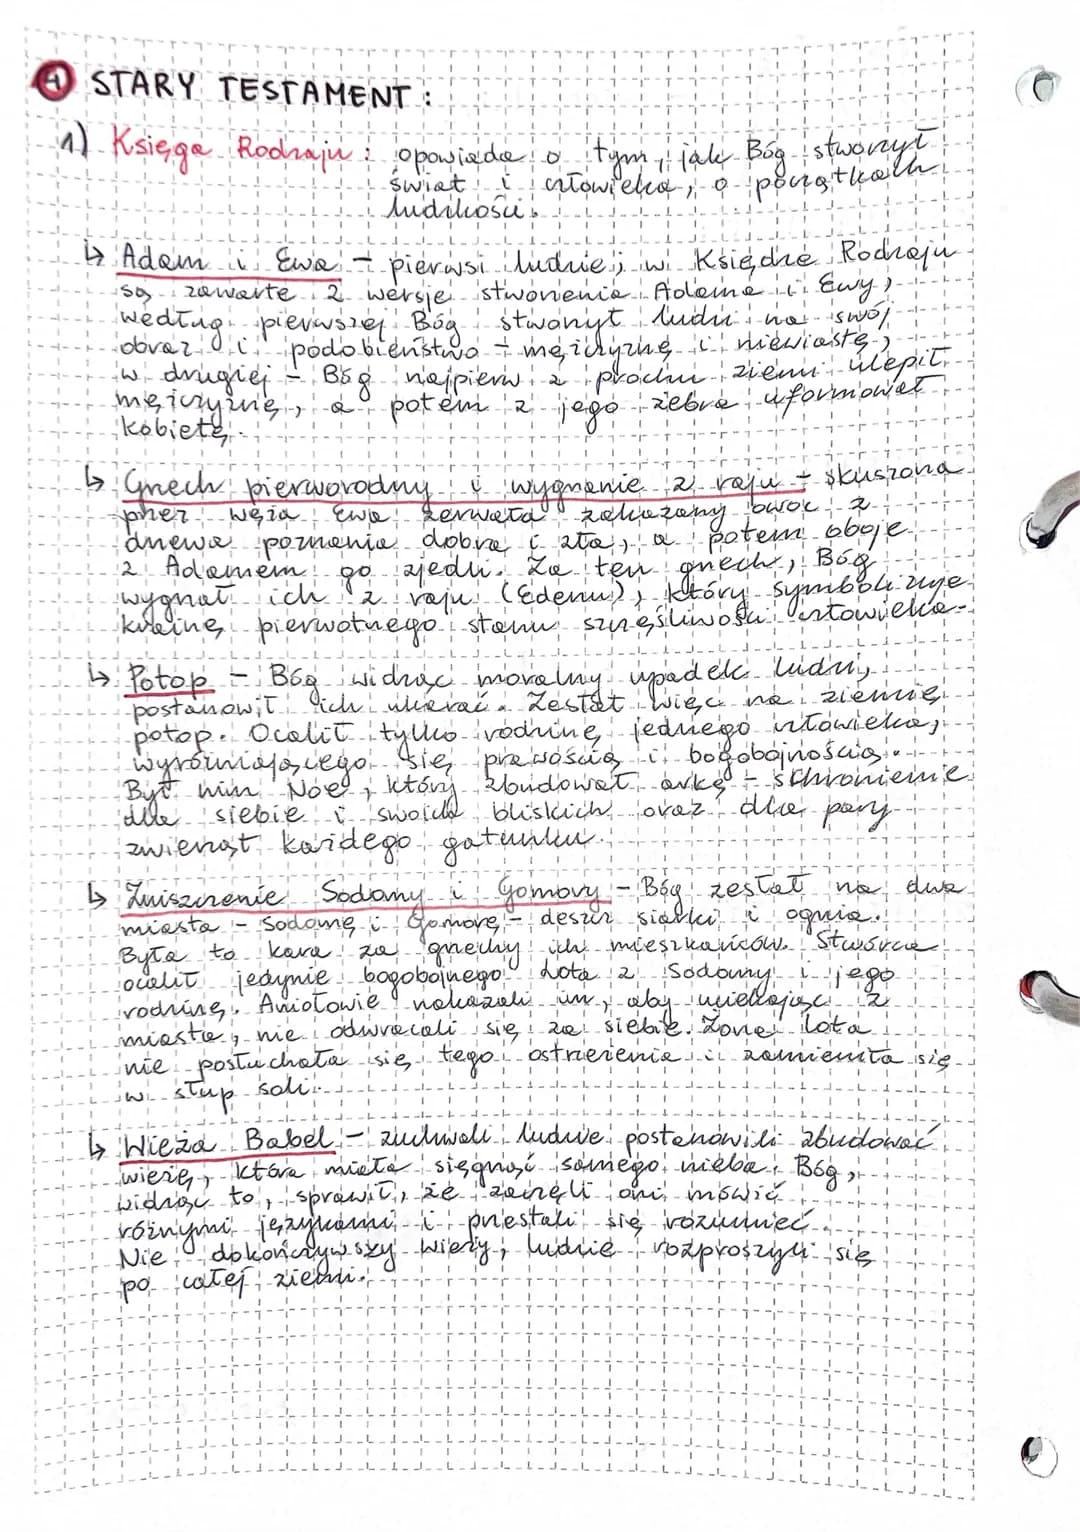 4 STARY TESTAMENT:
1) Księga Rodzaju: opowiada o tym, jak Bóg stworzył
świat i człowieka, o początkach
ludzkości.
↳ Adam i Ewa - pierwsi ludzie; w Księdze Rodzaju
są zawarte 2 wersje stworzenia Adama i Ewy;
według pierwszej Bóg stworzył ludzi na swój
obraz i podobieństwo - mężczyznę i niewiastę,
w drugiej - Bóg najpierw z prochu ziemi ulepił
mężczyznę, a potem z jego żebra uformował
kobietę.
↳ Grzech pierworodny i wygnanie z raju - skuszona
przez węża Ewa zerwała zakazany owoc z
drzewa poznania dobra i zła, a potem oboje
z Adamem go zjedli. Za ten grzech, Bóg
wygnał ich z raju (Edenu), który symbolizuje
krainę pierwotnego stanu szczęśliwości człowieka.
↳ Potop - Bóg widząc moralny upadek ludzi,
postanowił ich ukarać. Zesłał więc na ziemię
potop. Ocalił tylko rodzinę jednego człowieka,
wyróżniającego się prawością i bogobojnością.
Był nim Noe, który zbudował arkę - schronienie
dla siebie i swoich bliskich oraz dla pary
zwierząt każdego gatunku.
↳ Zniszczenie Sodomy i Gomory - Bóg zesłał na dwa
miasta - Sodomę i Gomorę - deszcz siarki i ognia.
Była to kara za grzechy ich mieszkańców. Stwórca
ocalił jedynie bogobojnego Lota z Sodomy i jego
rodzinę. Aniołowie nakazali im, aby uciekając z
miasta, nie odwracali się za siebie. Żona Lota
nie posłuchała się tego ostrzeżenia i zamieniła się
w słup soli.
↳ Wieża Babel - zuchwali ludzie postanowili zbudować
wieżę, która miała sięgnąć samego nieba. Bóg,
widząc to, sprawił, że zaczęli oni mówić
różnymi językami i przestali się rozumieć.
Nie dokończywszy wieży, ludzie rozproszyli się
po całej ziemi.